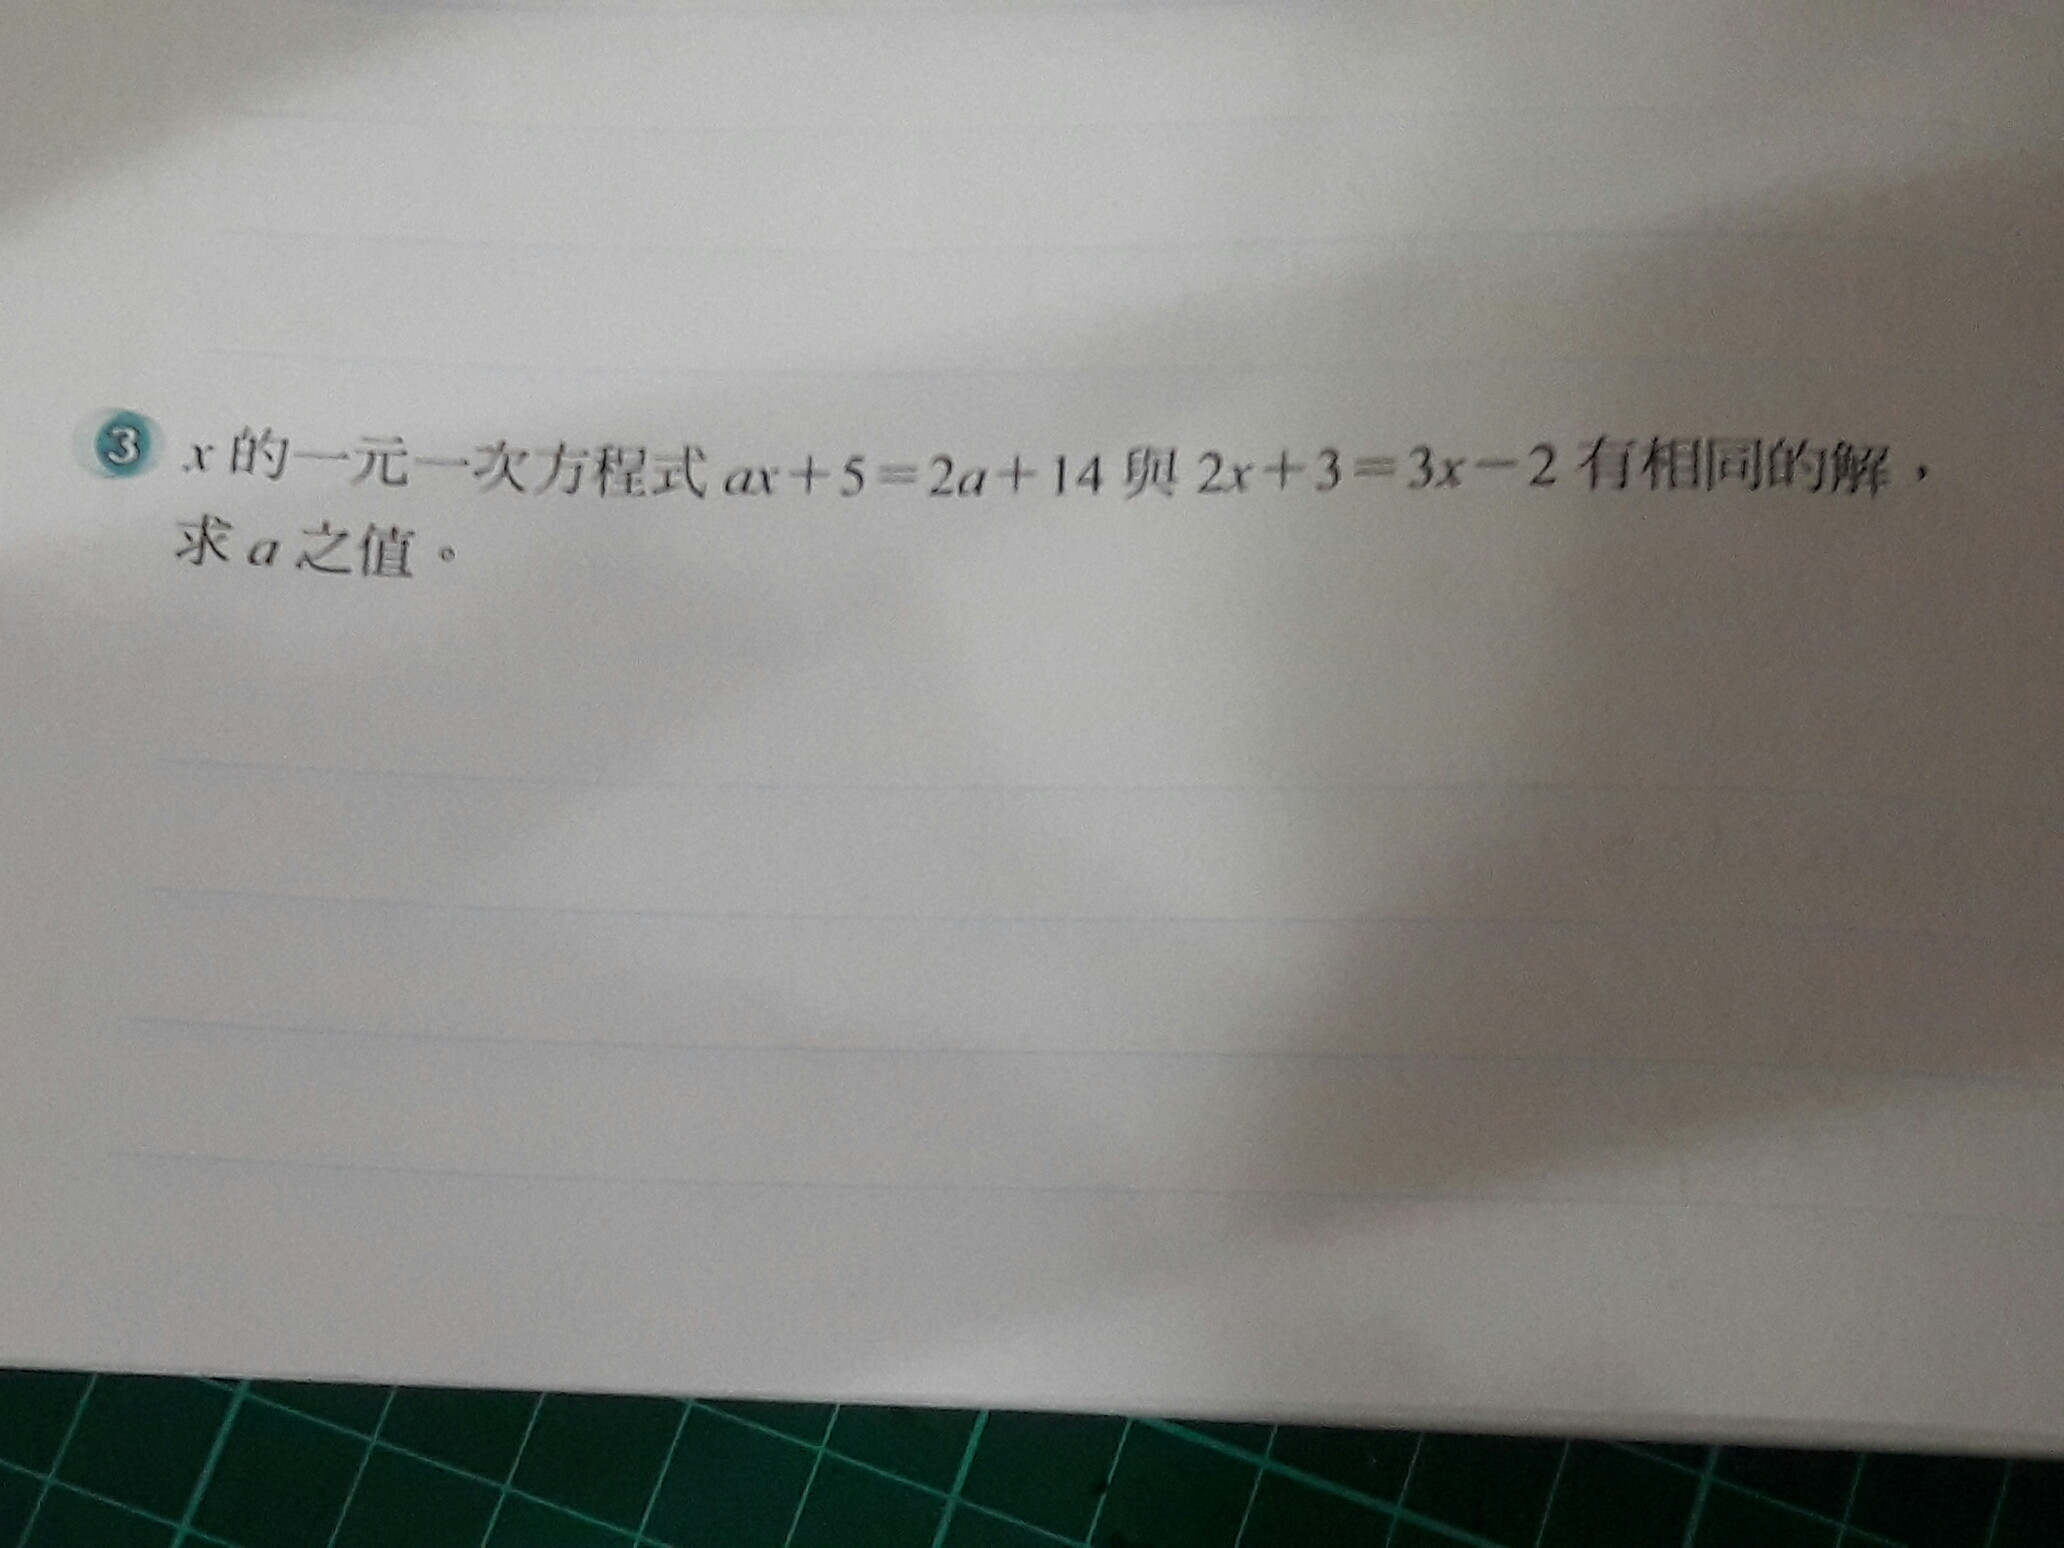 3 x 的一元一次方程式 ax+5=2a+14 與 2x+3=3x-2 有相同的解，
求 a 之值。